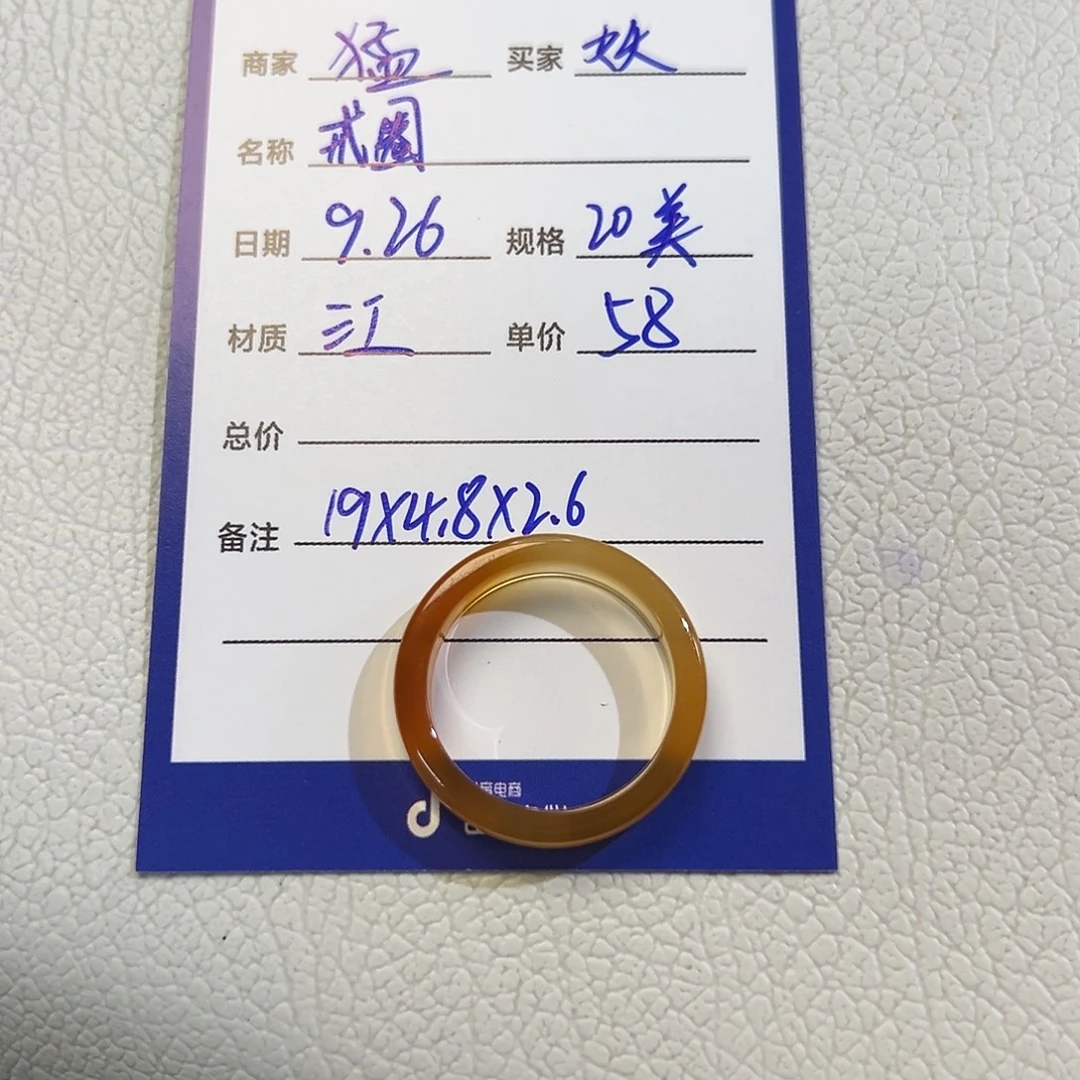 商家 猛 买家
名称 戒圈
日期 9.26 规格 20美
材质 江 单价 58
总价
备注 19X4.8X2.6
电商